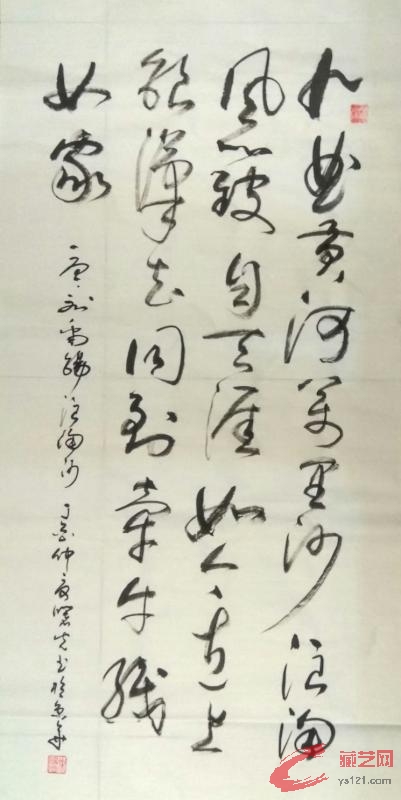 九曲黄河萬里沙浪淘
风簸自天涯如今直上
銀漢去同到牵牛織
女家
唐刘禹锡浪淘沙 丁酉仲夏曙光书於京华
藏艺网
ys121.com